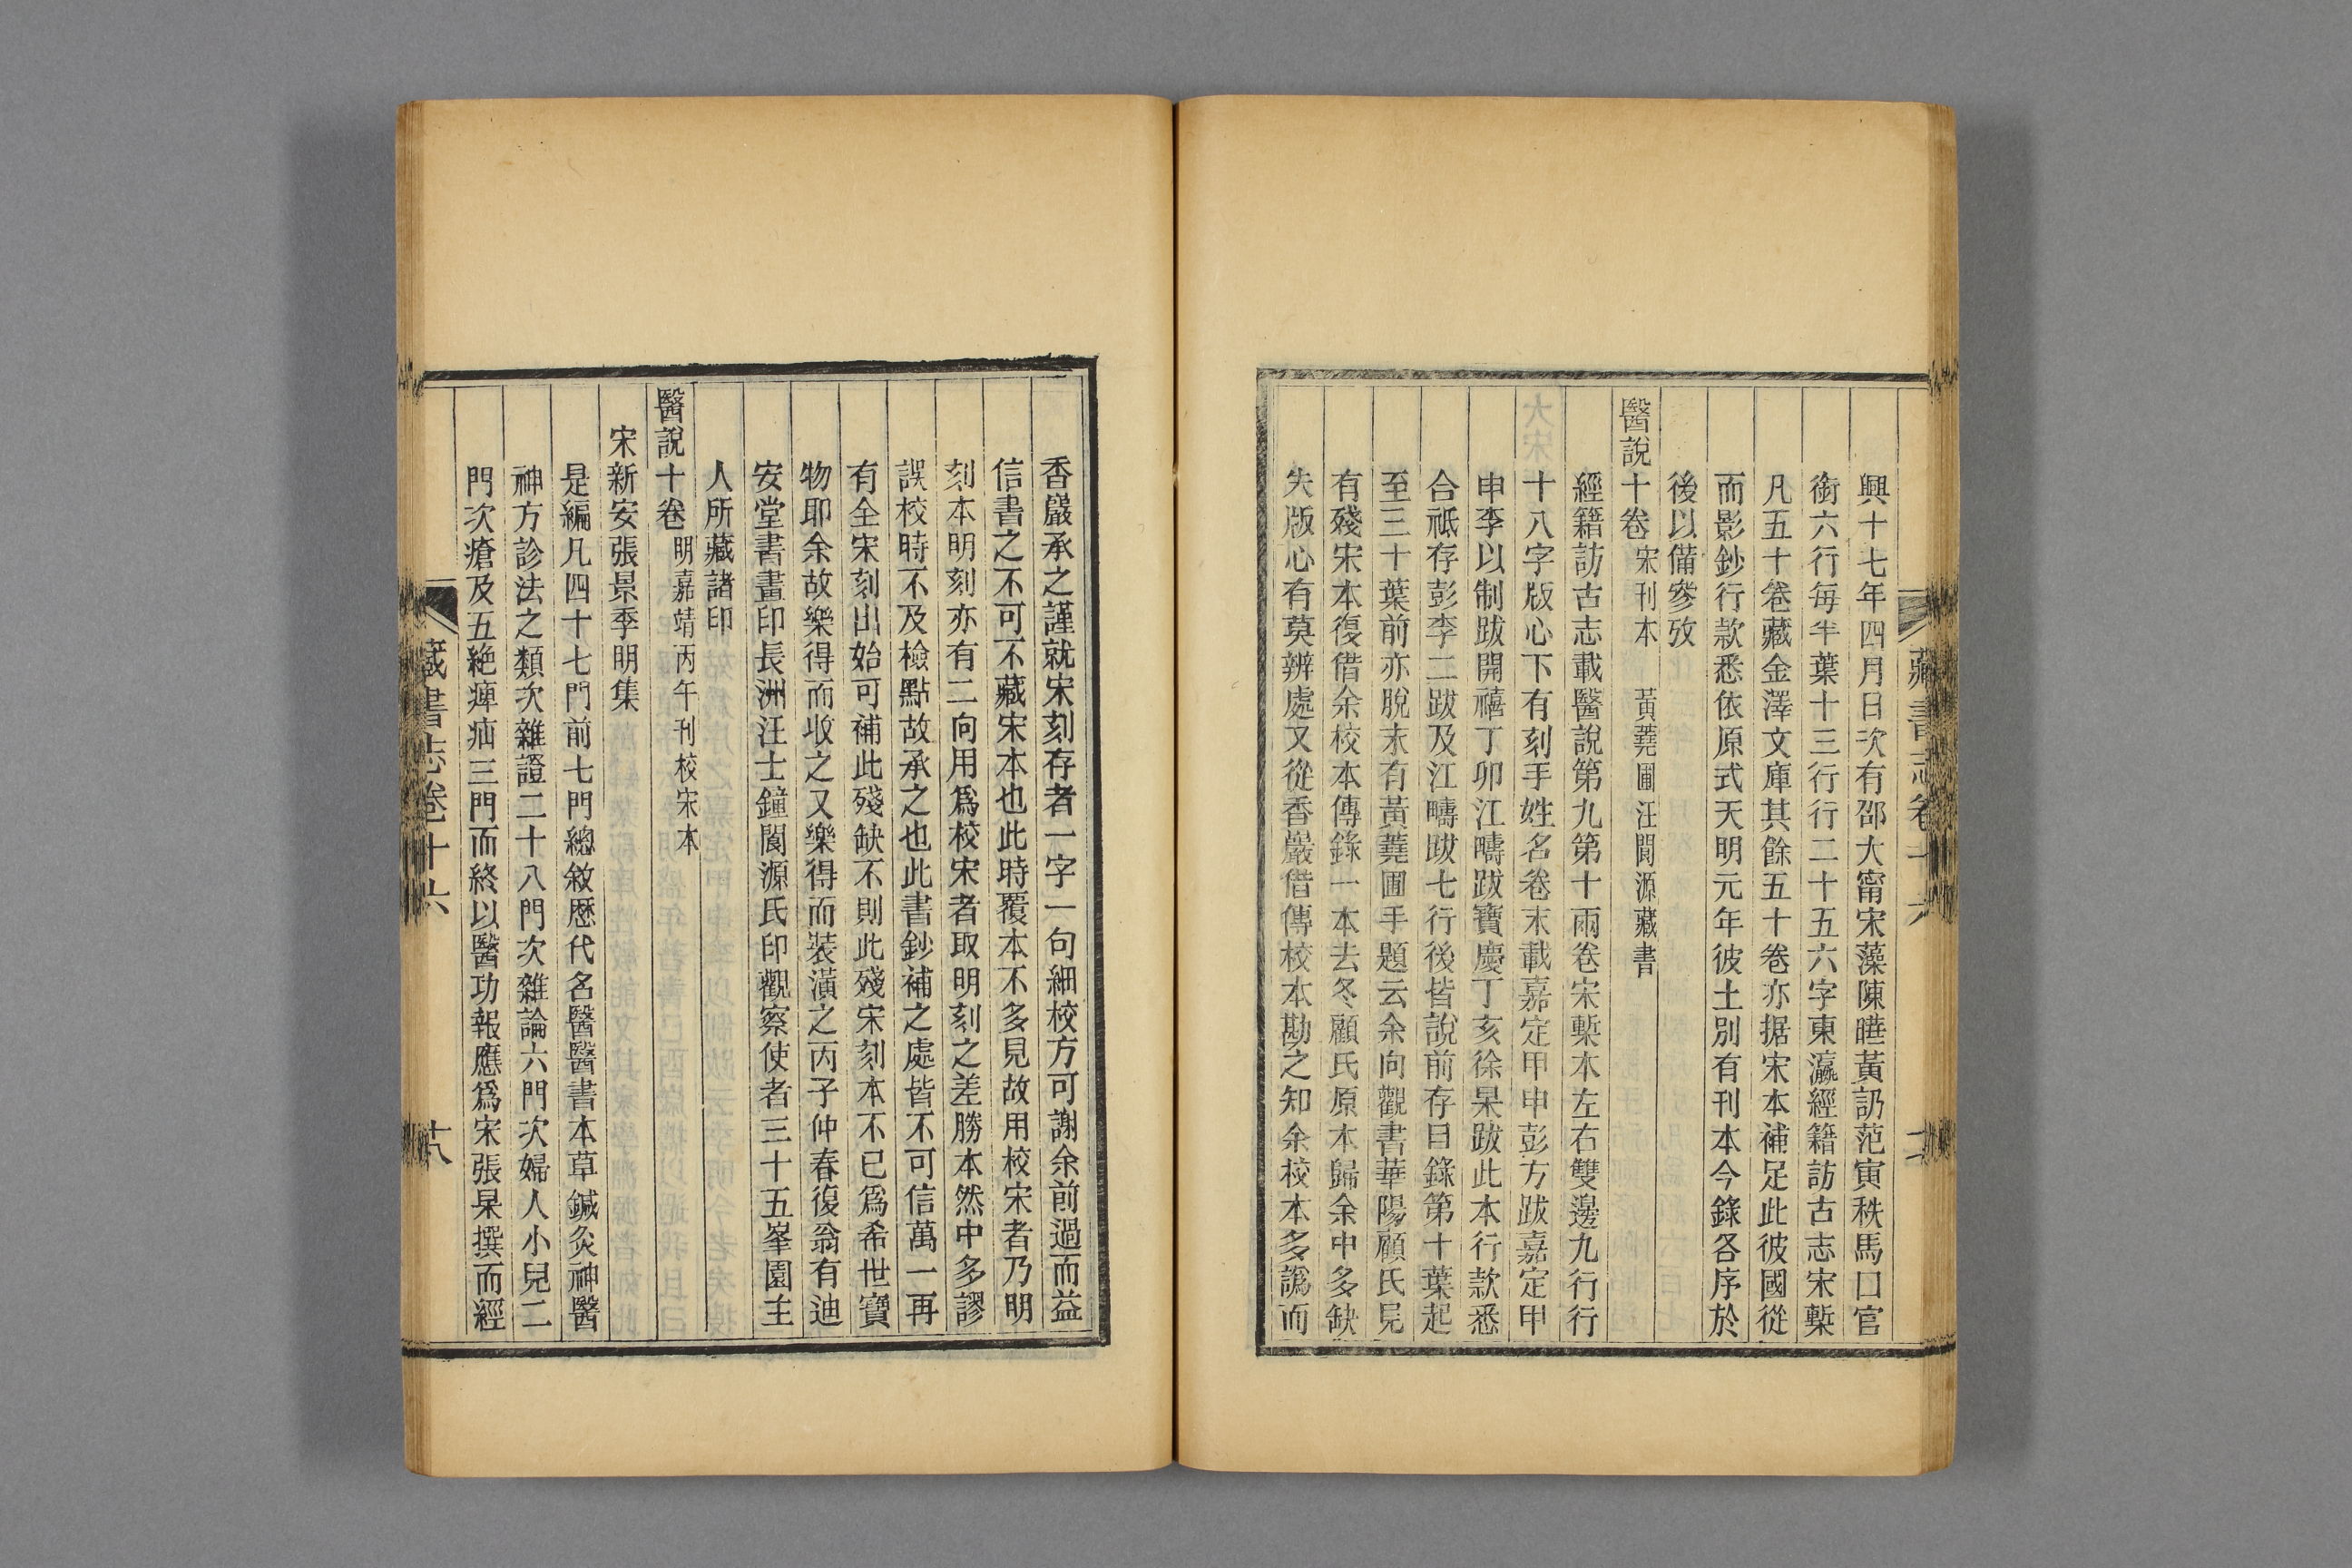 興十七年四月日次有邵大甯宋藻陳曄黃訒范寅秩馬口官
銜六行每半葉十三行行二十五六字東瀛經籍訪古志宋槧
凡五十卷藏金澤文庫其餘五十卷亦据宋本補足此彼國從
而影鈔行款悉依原式天明元年彼土別有刊本今錄各序於
後以備參攷
醫說十卷 宋刊本 黃蕘圃汪閬源藏書
經籍訪古志載醫說第九第十兩卷宋槧本左右雙邊九行行
十八字版心下有刻手姓名卷末載嘉定甲申彭方跋嘉定甲
申李以制跋開禧丁卯江疇跋寶慶丁亥徐杲跋此本行款悉
合祗存彭李二跋及江疇跋七行後皆說前存目錄第十葉起
至三十葉前亦脫末有黃蕘圃手題云余向觀書華陽顧氏見
有殘宋本復借余校本傳錄一本去冬顧氏原本歸余中多缺
失版心有莫辨處又從香嚴借傳校本勘之知余校本多譌而
香嚴承之謹就宋刻存者一字一句細校方可謝余前過而益
信書之不可不藏宋本也此時覆本不多見故用校宋者乃明
刻本明刻亦有二向用爲校宋者取明刻之差勝本然中多謬
誤校時不及檢點故承之也此書鈔補之處皆不可信萬一再
有全宋刻出始可補此殘缺不則此殘宋刻本不已爲希世寶
物耶余故樂得而收之又樂得而裝潢之丙子仲春復翁有迪
安堂書畫印長洲汪士鐘閬源氏印觀察使者三十五峯園主
人所藏諸印
醫說十卷 明嘉靖丙午刊校宋本
宋新安張景季明集
是編凡四十七門前七門總敘歷代名醫醫書本草鍼灸神醫
神方診法之類次雜證二十八門次雜論六門次婦人小兒二
門次瘡及五絶痺疝三門而終以醫功報應爲宋張杲撰而經
藏書志卷十六
十八